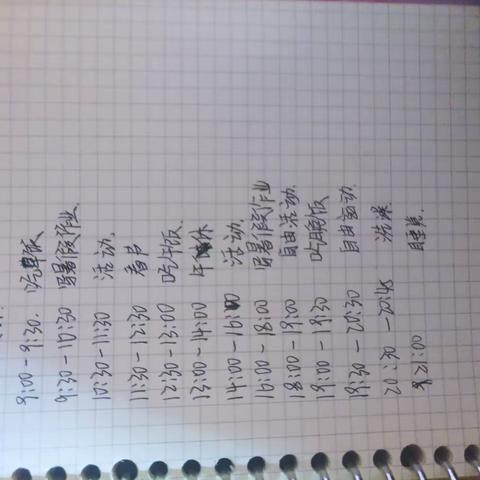 9:00-9:30. 吃早饭
9:30-10:30 写暑假作业.
10:30-11:30 活动.
11:30-12:30 看书
12:30-13:00 吃午饭.
13:00-14:00 午休
14:00-16:00 活动.
16:00-18:00 写暑假作业
18:00-19:00 自由活动.
19:00-19:30 吃晚饭
19:30-20:30 自由活动.
20:30-20:45 洗澡.
21:00